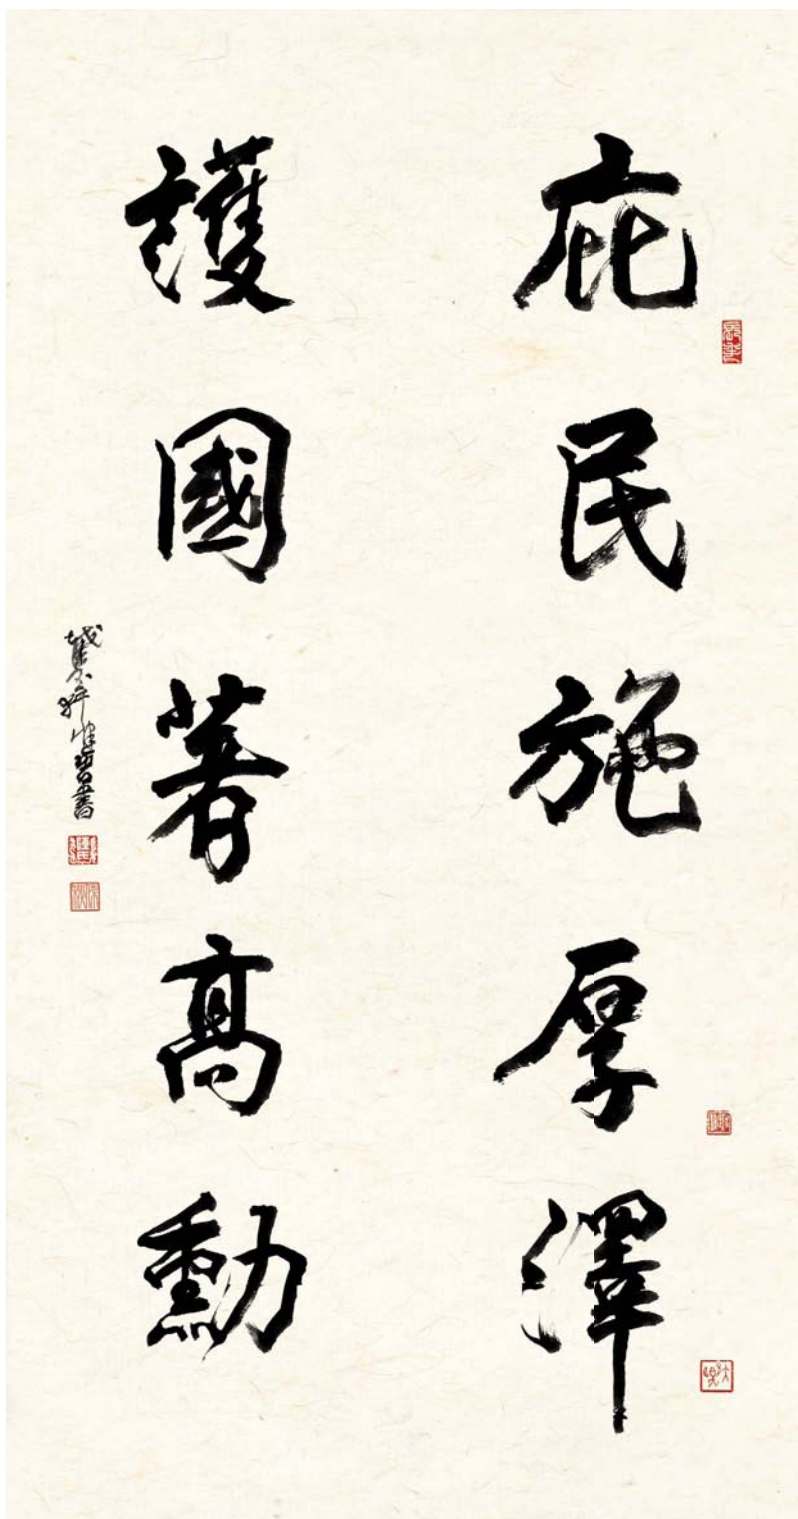 庇民施厚澤
護國著高勳